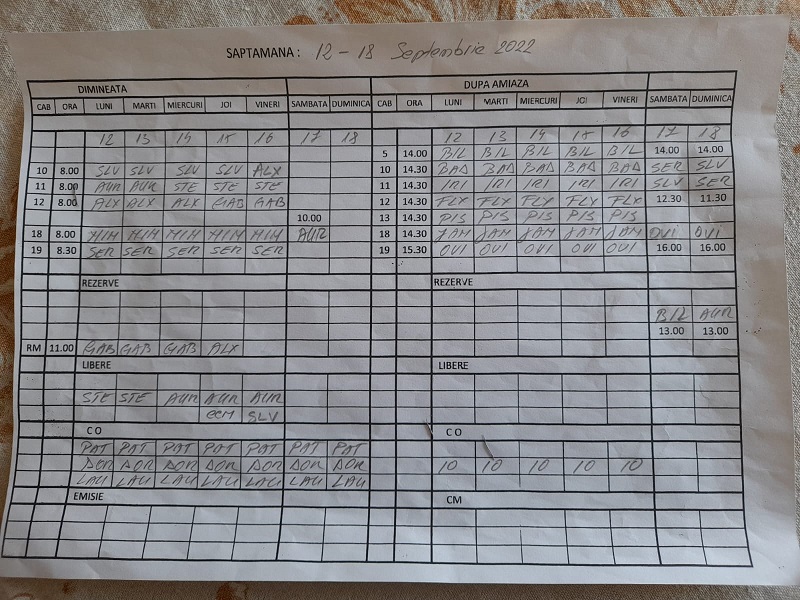 SAPTAMANA: 12 - 18 Septembrie 2022
DIMINEATA DUPA AMIAZA
CAB ORA LUNI MARTI MIERCURI JOI VINERI SAMBATA DUMINICA CAB ORA LUNI MARTI MIERCURI JOI VINERI SAMBATA DUMINICA
12 13 14 15 16 17 18 12 13 14 15 16 17 18
5 14.00 BIL BIL BIL BIL BIL 14.00 14.00
10 8.00 SLV SLV SLV SLV ALX 10 14.30 BAD BAD BAD BAD BAD SER SLV
11 8.00 AUR AUR STE STE STE 11 14.30 IRI IRI IRI IRI IRI SLV SER
12 8.00 ALX ALX ALX GAB GAB 12 14.30 FLX FLX FLX FLX FLX 12.30 11.30
10.00 13 14.30 PIS PIS PIS PIS PIS
18 8.00 MIH MIH MIH MIH MIH AUR 18 14.30 JAM JAM JAM JAM JAM OVI OVI
19 8.30 SER SER SER SER SER 19 15.30 OVI OVI OVI OVI OVI 16.00 16.00
REZERVE REZERVE
BIL AUR
13.00 13.00
RM 11.00 GAB GAB GAB ALX
LIBERE LIBERE
STE STE AUR AUR AUR
SLV
CO CO
PAT PAT PAT PAT PAT PAT PAT
DOR DOR DOR DOR DOR DOR DOR 10 10 10 10 10
LAU LAU LAU LAU LAU LAU LAU
EMISIE CM